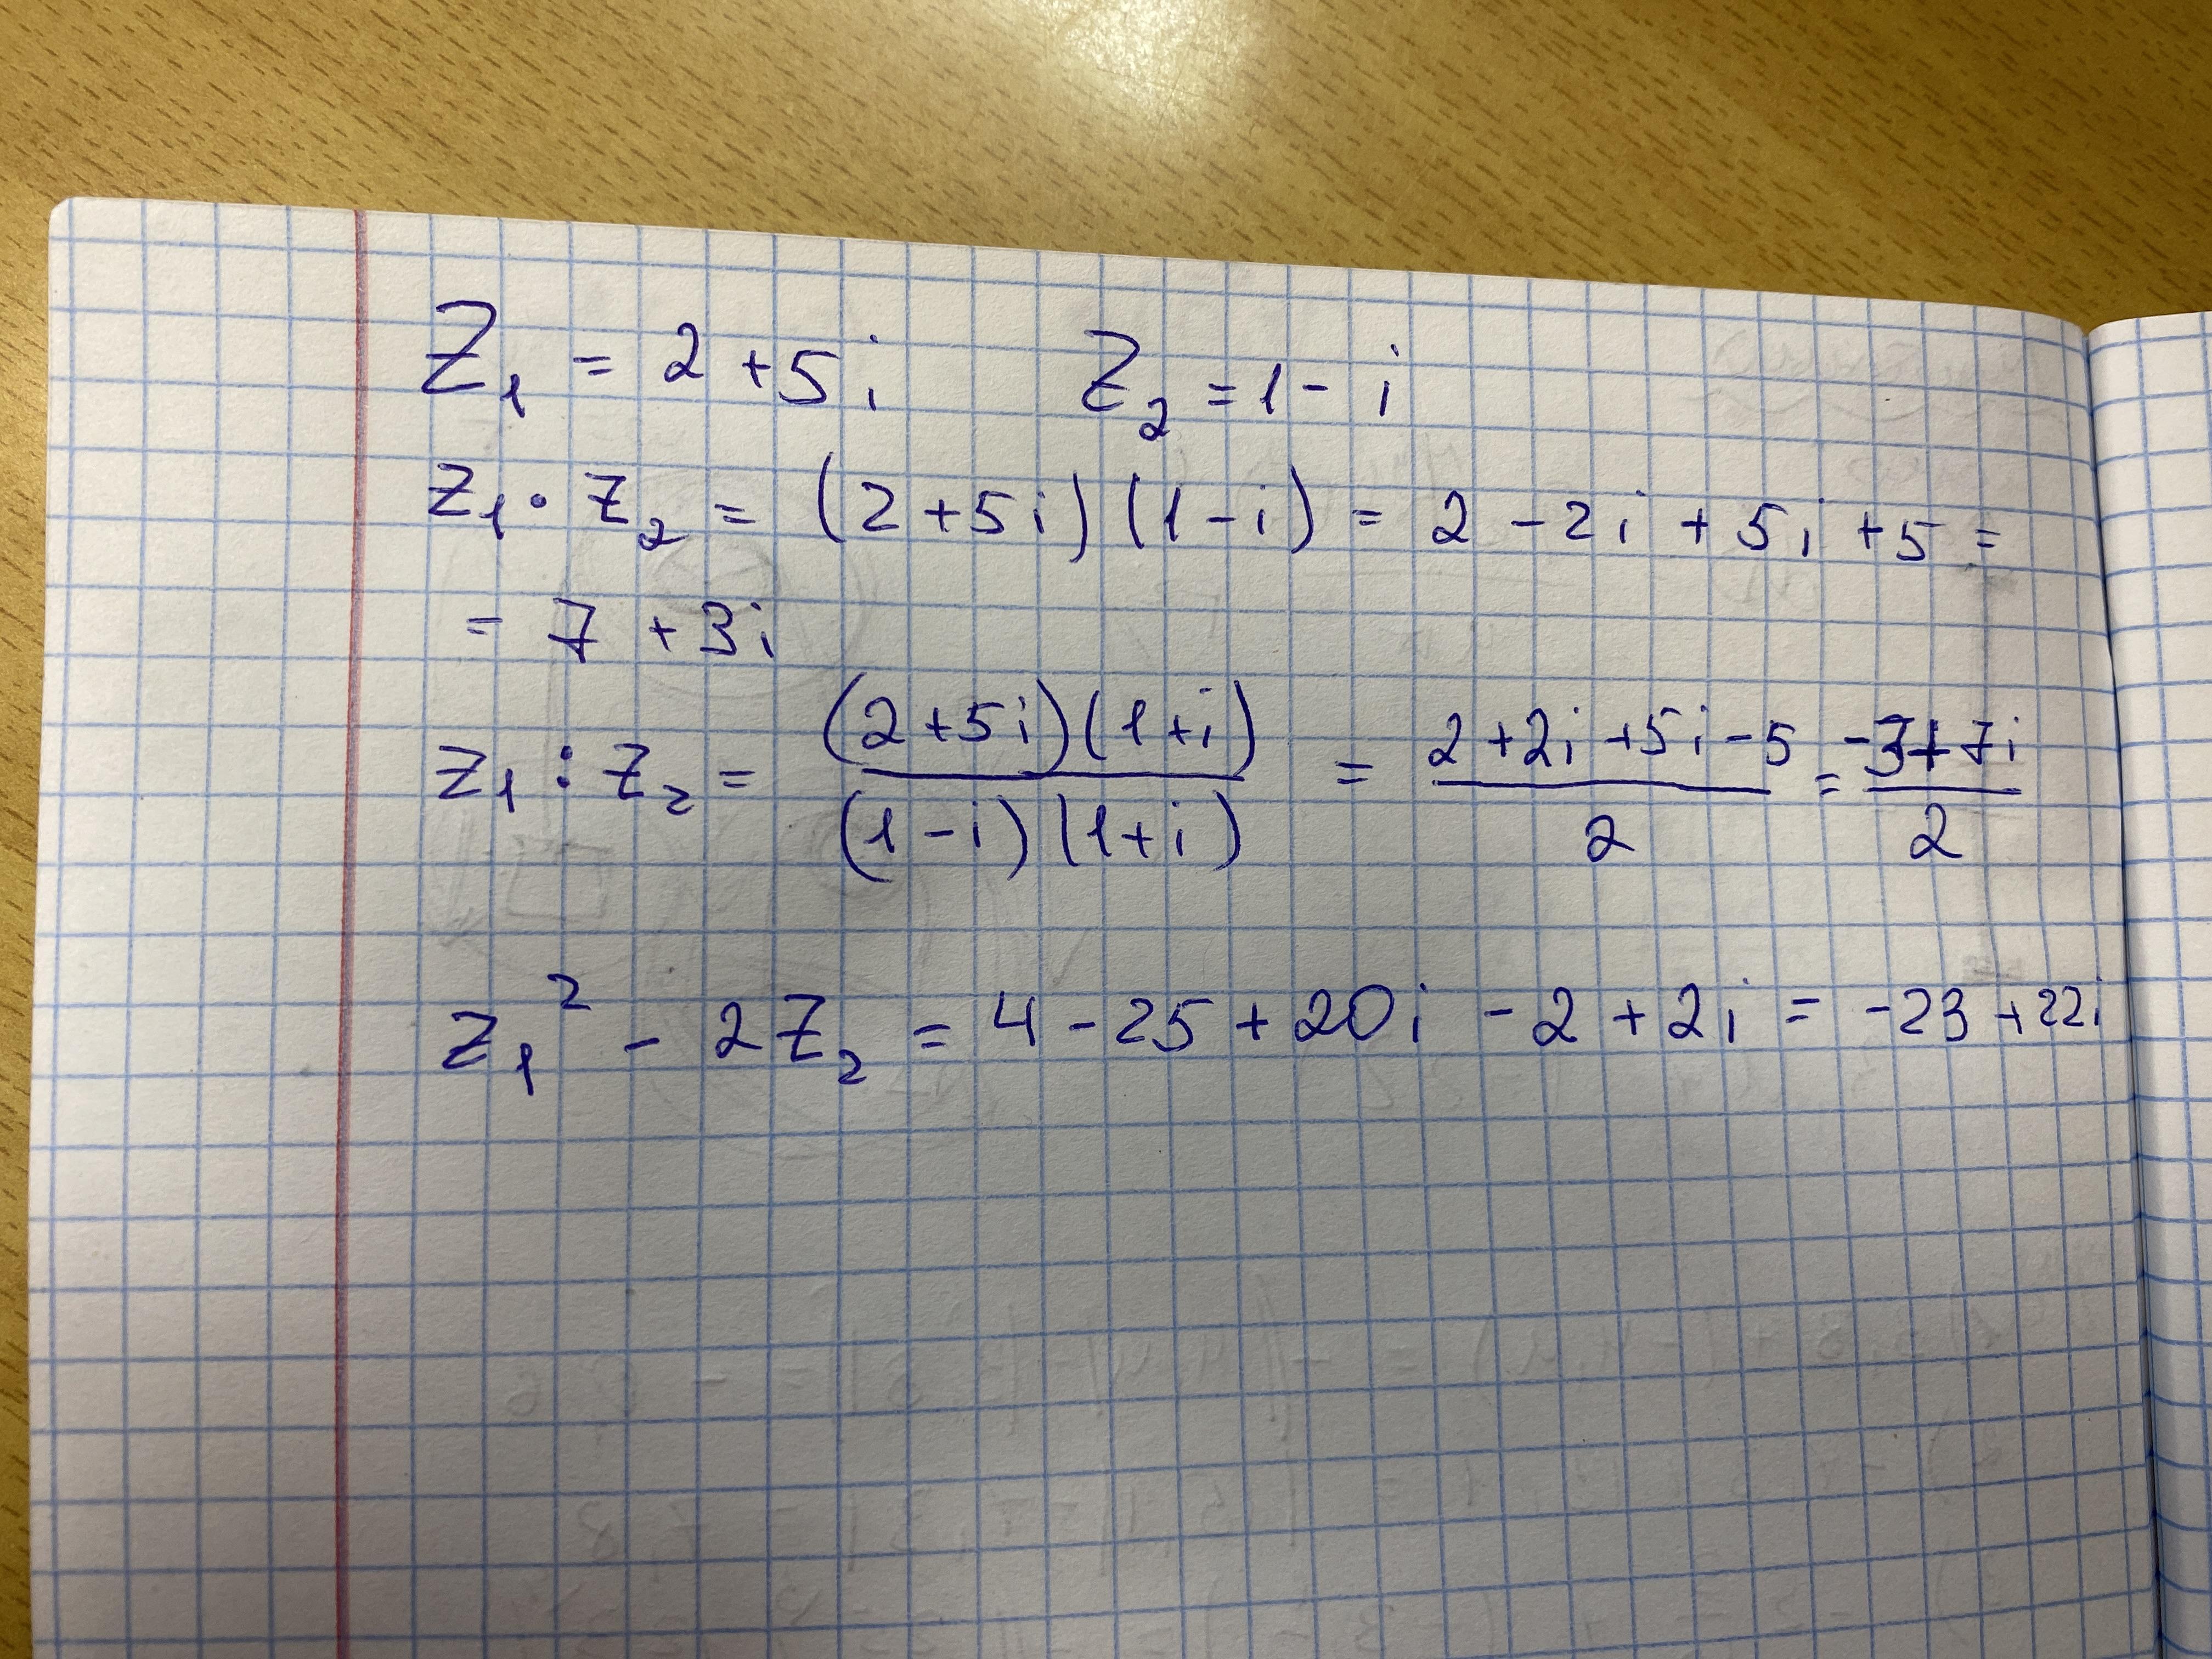 Z₁ = 2 + 5i Z₂ = 1 - i
Z₁ · Z₂ = (2 + 5i)(1 - i) = 2 - 2i + 5i + 5 =
= 7 + 3i
Z₁ : Z₂ = (2 + 5i)(1 + i) / (1 - i)(1 + i) = 2 + 2i + 5i - 5 / 2 = -3 + 7i / 2
Z₁² - 2Z₂ = 4 - 25 + 20i - 2 + 2i = -23 + 22i